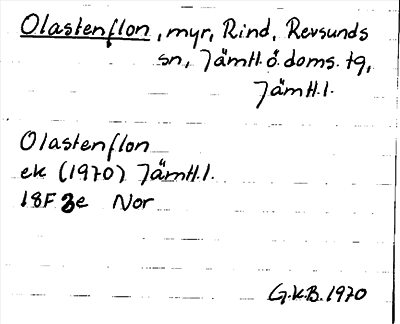 Olastenflon, myr, Rind, Revsunds
sn, Jämtl. ö. doms. tg,
Jämtl.l.
Olastenflon
ek (1970) Jämtl.l.
18F 3e Nor
G.K.B. 1970